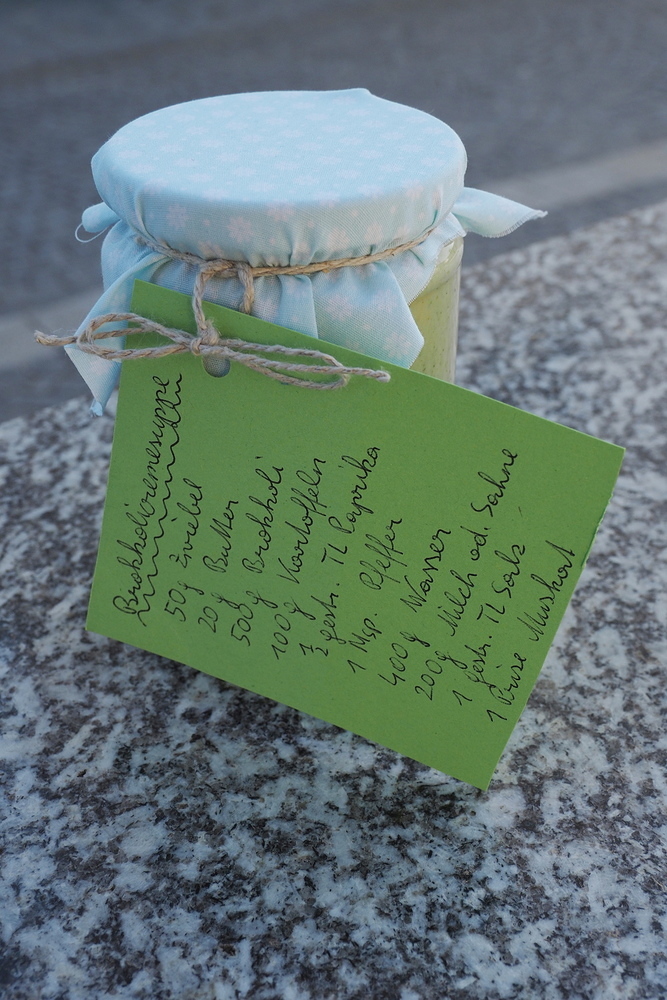 Brokkolicremesuppe
50g Zwiebel
20g Butter
500g Brokkoli
100g Kartoffeln
½ gestr. TL Paprika
1 Msp. Pfeffer
400g Wasser
200g Milch od. Sahne
1 gestr. TL Salz
1 Prise Muskat